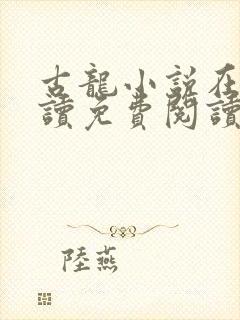 古龍小說在
讀免費閱讀
陸燕